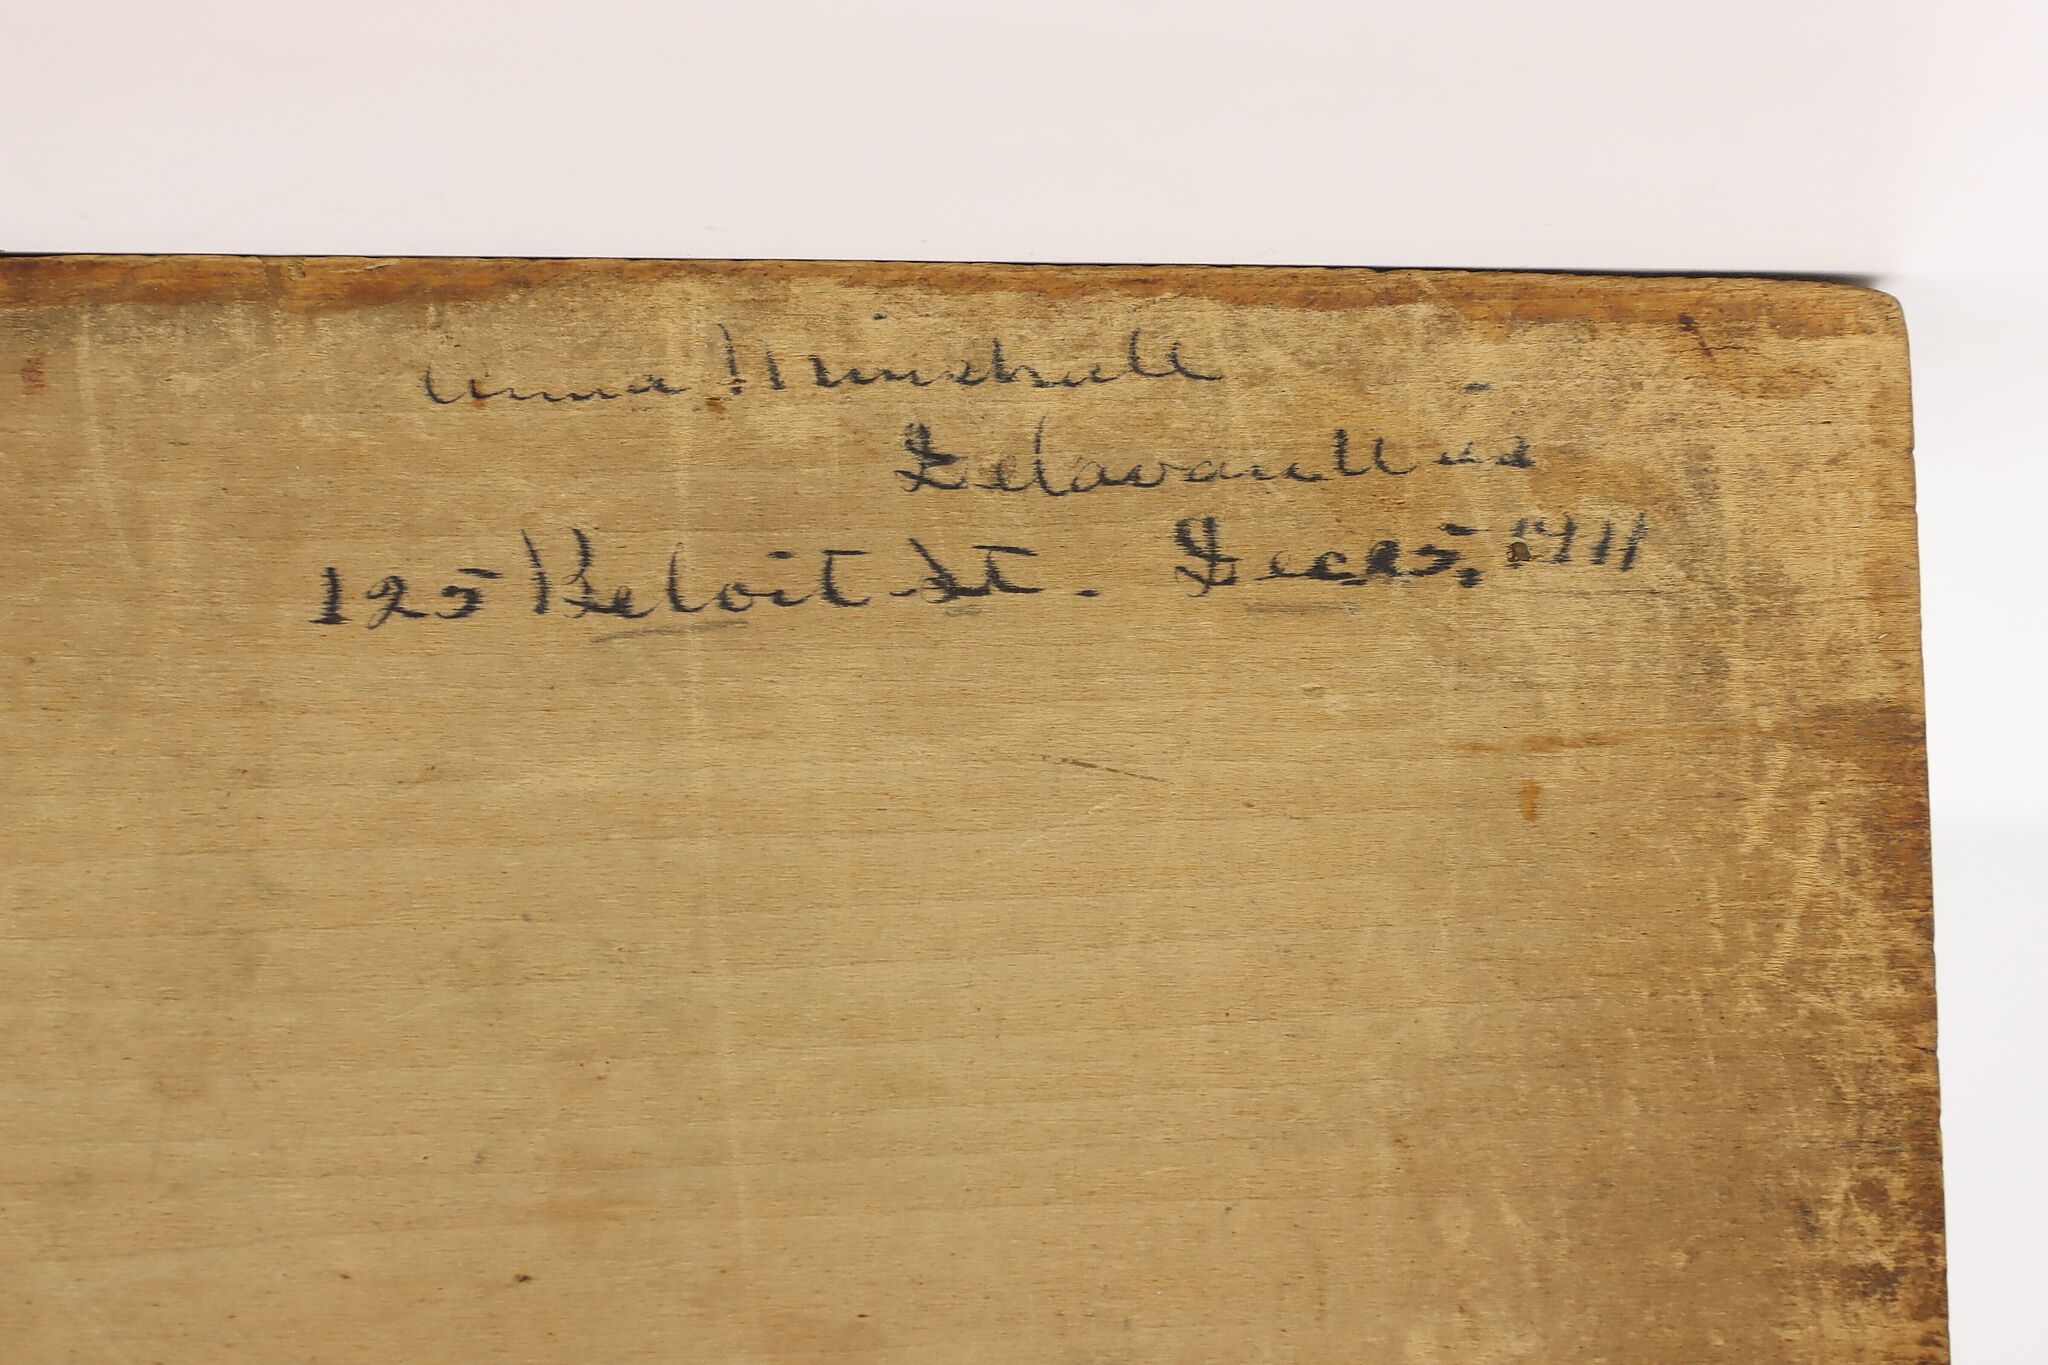 Anna Minshall
Delavan Wis
125 Beloit St. Dec 25, 1911